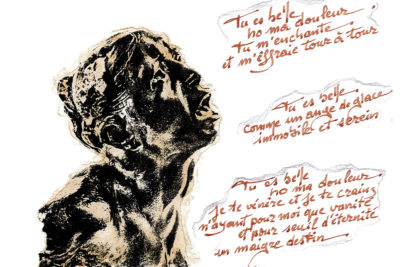 Tu es belle
ho ma douleur
tu m'enchante
et m'effraie tour à tour
Tu es belle
comme un ange de glace
immobile et serein
Tu es belle
ho ma douleur
je te vénère et je te crains
n'ayant pour moi que vanité
et pour seuil d'éternité
un maigre destin